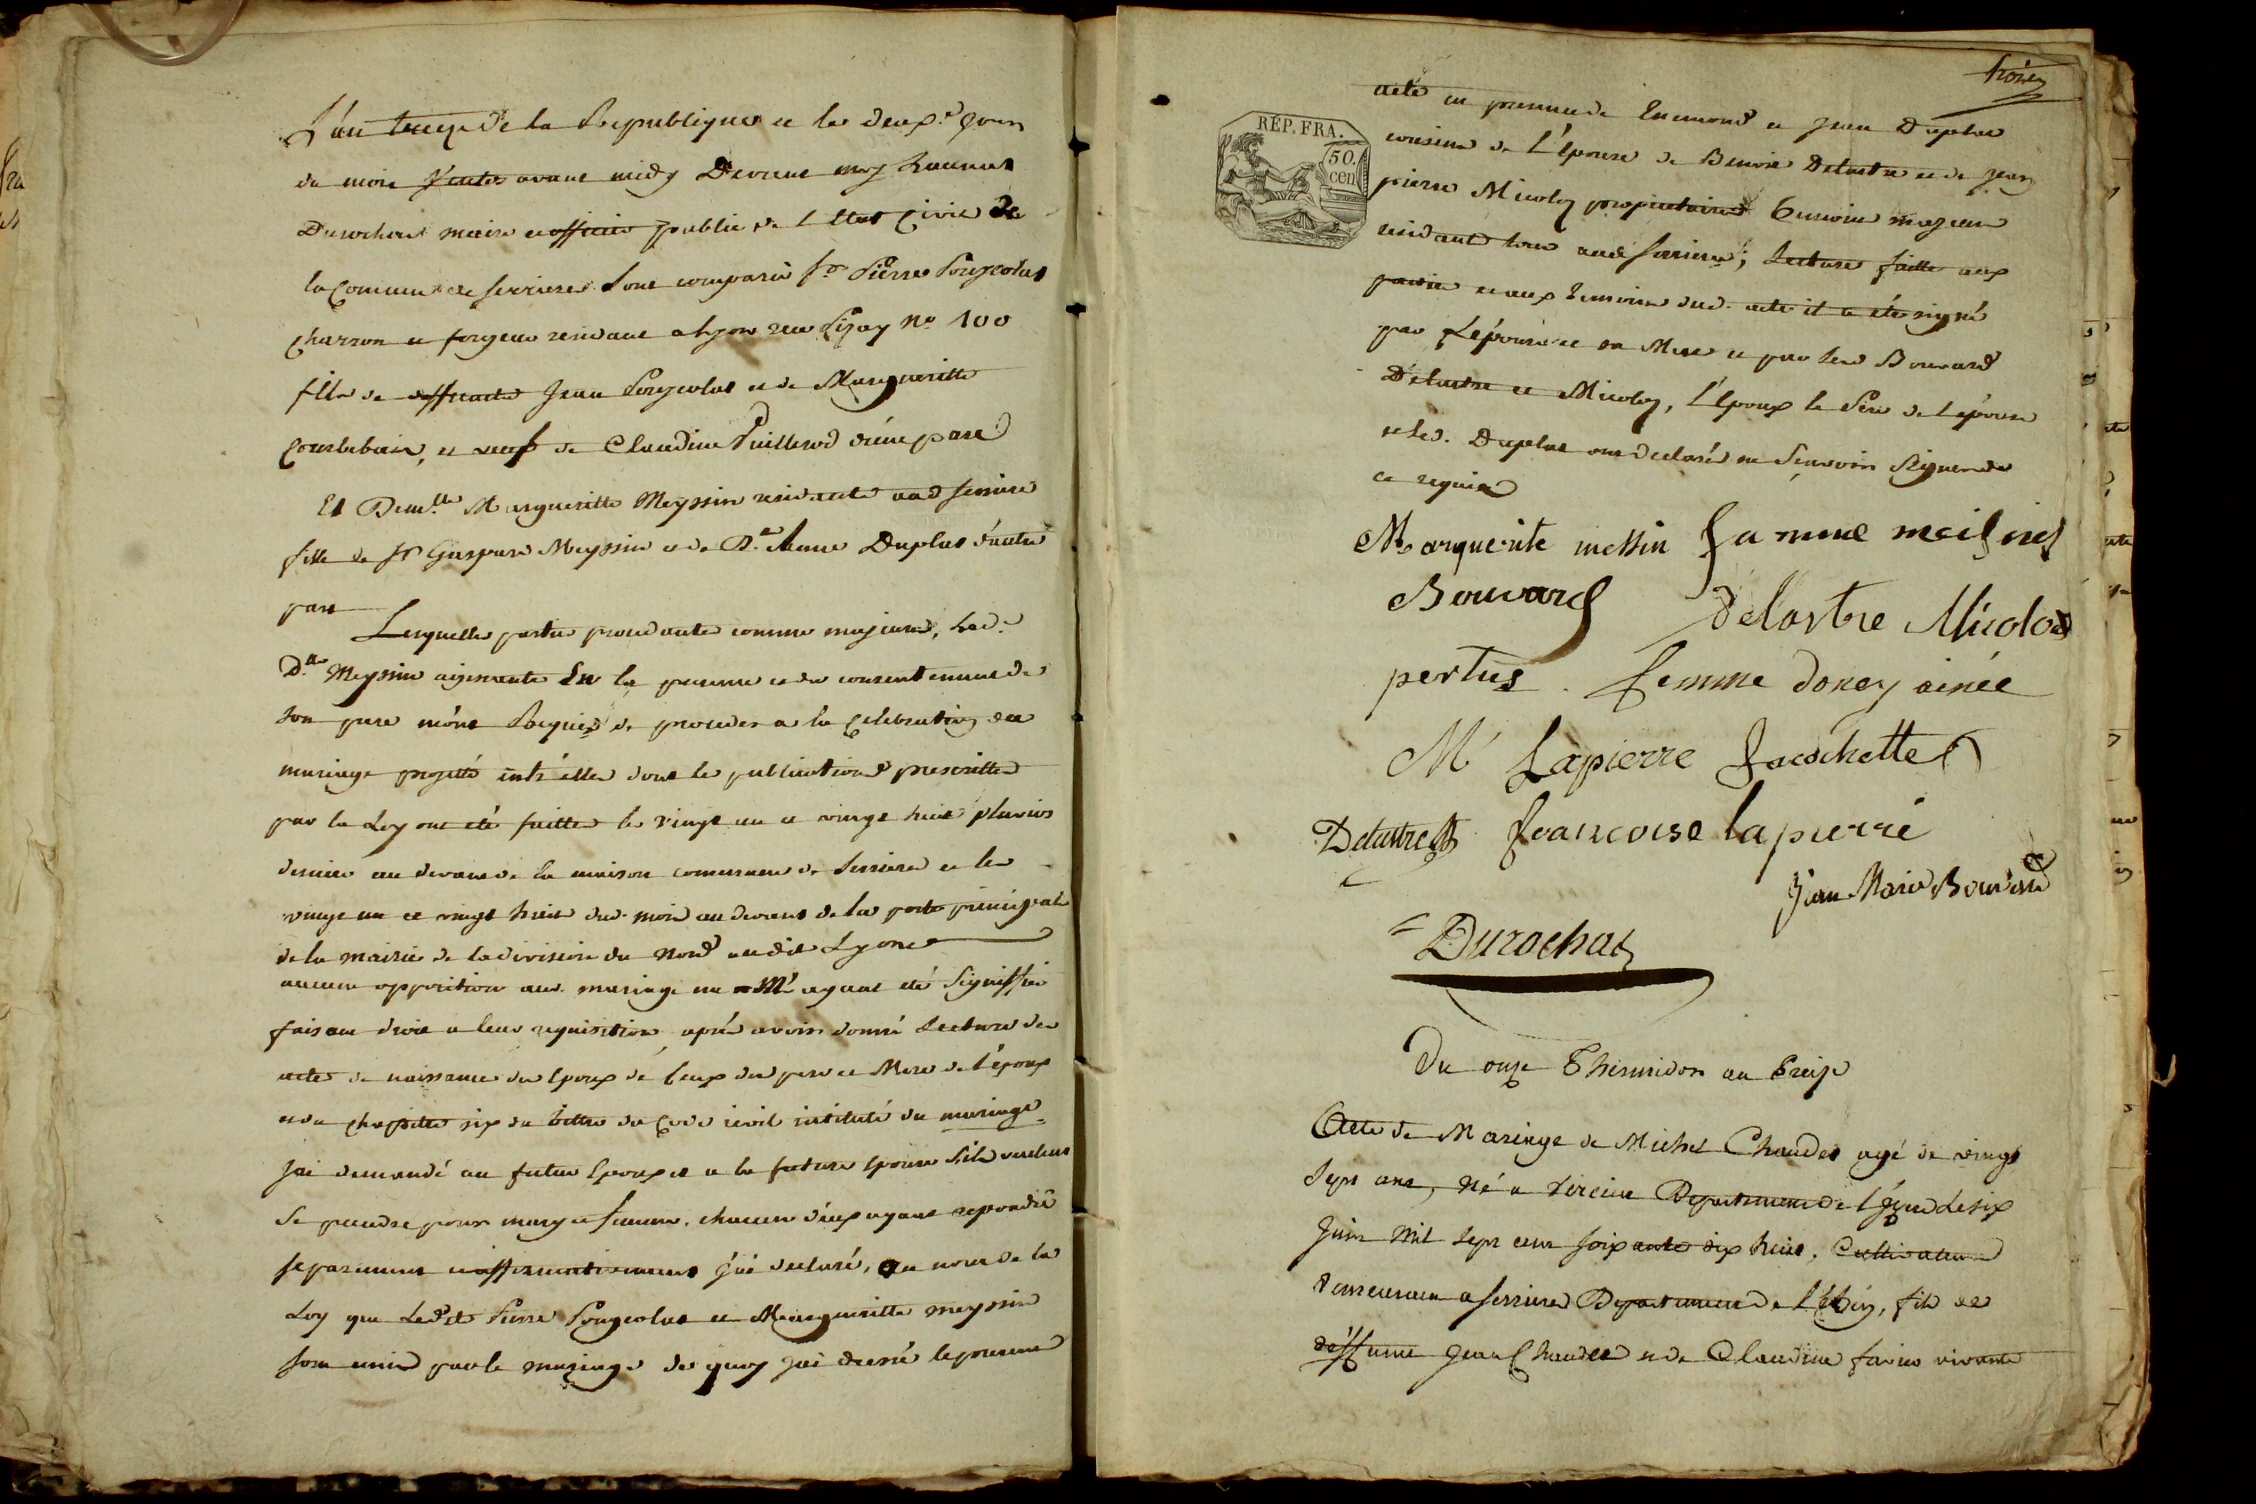 L'an treize de la Republique et le deux.e jour
du mois Ventos avant midy Devant moy
Durochat maire et officier public de l'Etat Civil de
la Commune de serrieres sont comparu Sr Pierre Pougeolas
charron et forgeur residant a Lyon rue Lizay No 100
fils de deffunct Jean Pougeolas et de Margueritte
et veuf de Claudine Puillerod d'une part
Et Demlle Margueritte Meyssin residante aud serriere
fille de Sr Gaspard Meyssin et de De Anne Duplat d'autre
part
Lesquelles parties procedantes comme majeures, lad.e
Dlle Meyssin agissante En la presence et du consentement de
son pere m'ont Requis de proceder a la Celebration du
mariage projetté entr'elles dont les publications prescrittes
par la Loy ont été faittes les vingt un et vingt huit pluvios
dernier au devant de la maison commune de Serriere et les
vingt un et vingt huit dud. mois au devant de la porte principale
de la mairie de la division du Nord audit Lyon
aucune opposition aud. mariage ne m'ayant été Signiffiée
faisant droit a leur requisition après avoir donné Lecture des
actes de naissance des Epoux de ceux des pere et Mere de l'époux
et du chapitre six du tittre du Code civil intitulé du mariage
Jai demandé au futur Epoux et a la future Epouse s'ils veulent
se prendre pour mary et femme, chacun d'eux ayant repondu
separement et affirmativement j'ai declaré, au nom de la
Loy que Led.it Pierre Pougeolas et Margueritte meyssin
sont unis par le mariage de quoy jai dressé le present
acte en presence de Enemond et Jean Duplat
cousins de l'Epouse de Benoit Delastre et de Jean
pierre Micoloz propriétaires temoins majeurs
residants tous aud serrieres; Lecture faitte aux
parties et aux temoins dud. acte il a été signé
par L'épouse et sa Mere et par les Bouvard
Delastre et Micoloz, l'Epoux le Pere de l'épouse
et led. Duplat ont declaré ne sçavoir Signer de
ce requis
RÉP. FRA.
50.
cen
Marguerite messin fa mme meisin
Bouvard Delastre Micoloz
pertus. femme doney ainée
M Lapierre facochette
Delastre francoise lapierre
Jean Marie Bouvard
Durochat
Du onze Thermidor an treize
Acte de Mariage de Michel Chaudet agé de vingt
Sept ans, né a Departement de l' Le six
Juin Mil sept cent soixante dix huit, Cultivateur
demeurant a serrieres Departement de l'Ain, fils de
deffunt Jean Chaudet et de Claudine favier vivante